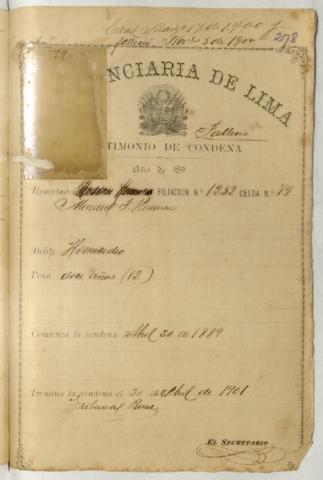 1900
falleció Nov. 3 de 1900
278
79
NCIARIA DE LIMA
Falleció
TIMONIO DE CONDENA
Año de 189
Rematado FILIACION N.º 1252 CELDA N.º 79
Manuel F.
Delito Homicidio
Pena doce años (12)
Comienza la condena Abril 30 de 1889
Termina la condena el 30 de Abril de 1901
Tribunal
EL SECRETARIO